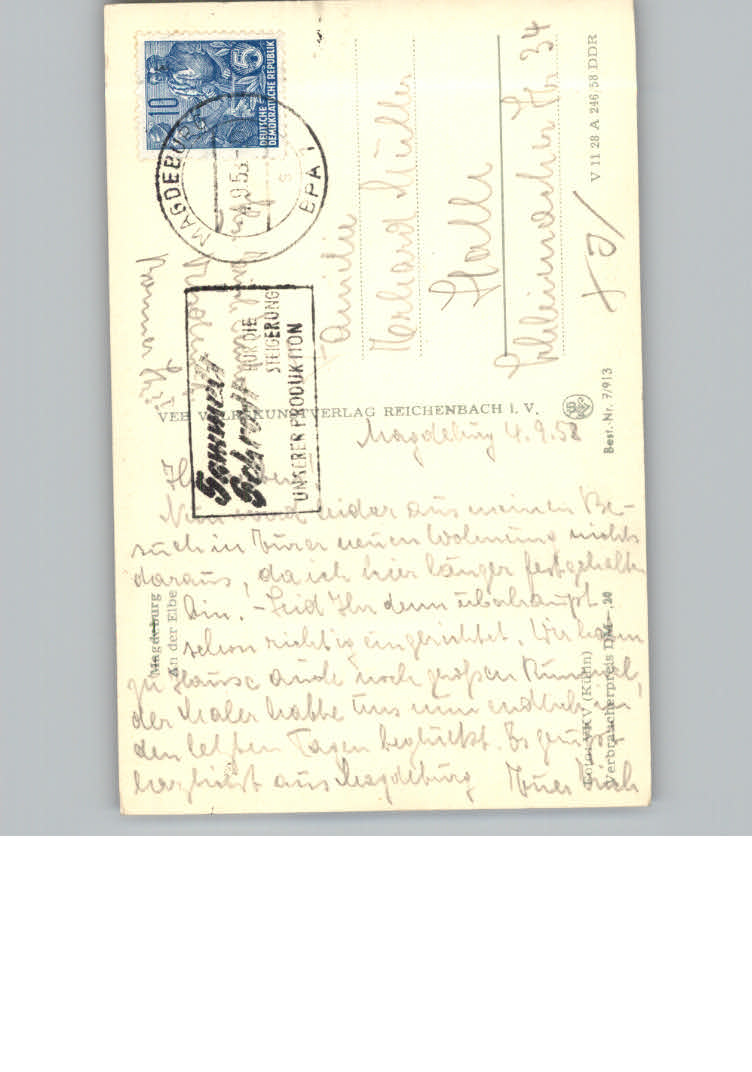 10
5
DEUTSCHE
DEMOKRATISCHE REPUBLIK
MAGDEBURG
BPA 1
Sammelt
Schrott FÜR DIE
STEIGERUNG
UNSERER PRODUKTION
Familie
Erhard Müller
Halle
Schleiermacher Str 34
V 11 28 A 246 58 DDR
VEB VOLKSKUNSTVERLAG REICHENBACH i. V.
Best.-Nr. 7/913
Magdeburg
An der Elbe
Foto: VKV (Kühn)
Verbraucherpreis DM —,20
Magdeburg 4.9.58
Ihr
Nun wird leider aus meinem Be-
such in Eurer neuen Wohnung nichts
daraus, da ich hier länger festgehalten
bin. – Seid Ihr denn überhaupt
schon richtig eingerichtet. Wir haben
zu Hause auch noch großen Rummel,
der Maler hatte uns nun endlich in
den letzten Tagen beglückt. Es grüßt
herzlichst aus Magdeburg Euer